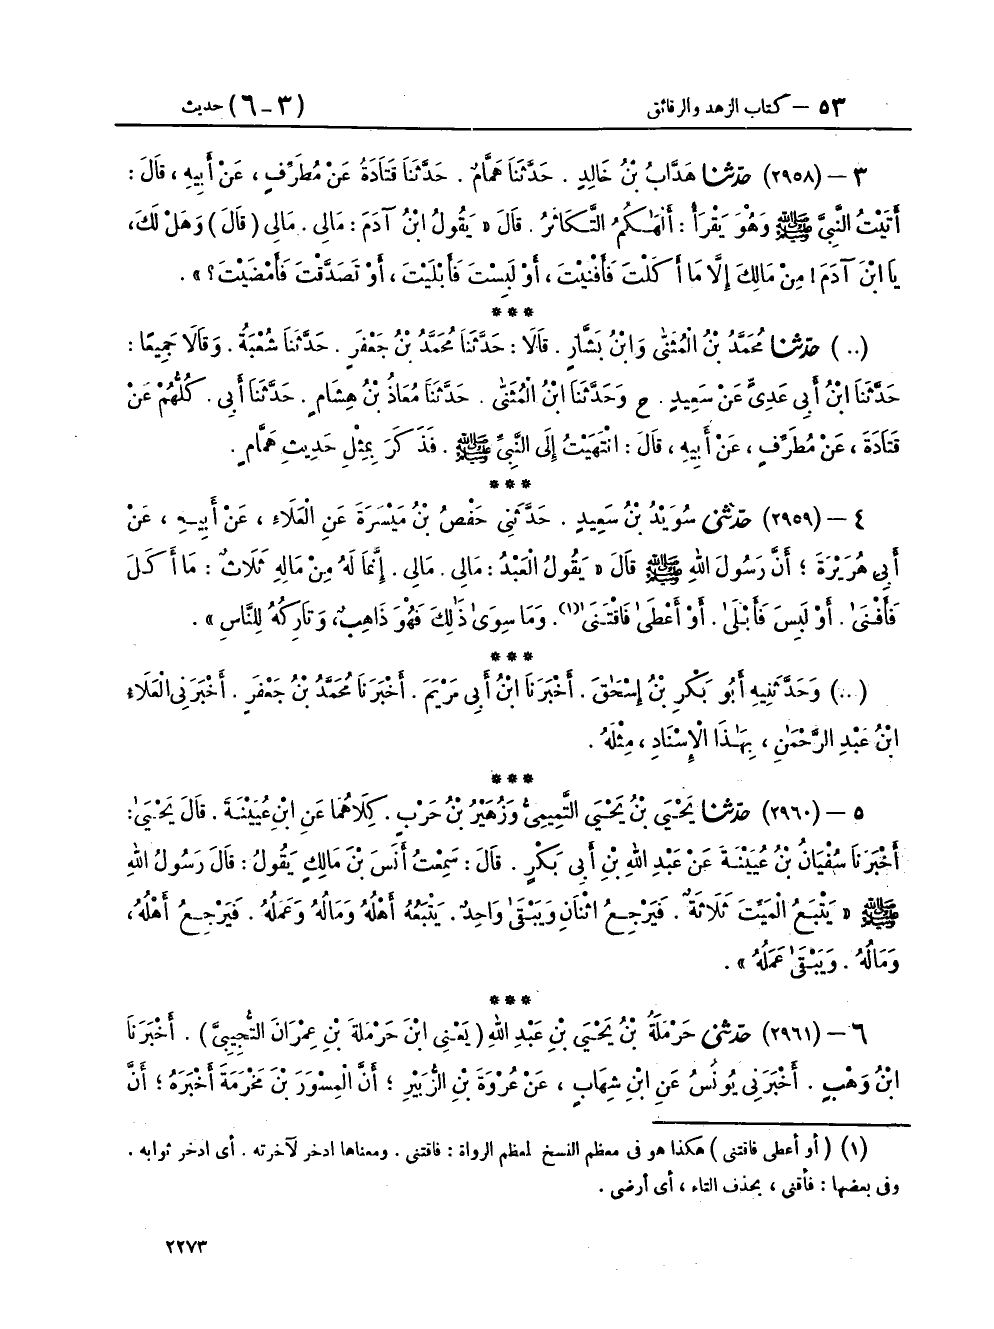 ٥٣ – كتاب الزهد والرقائق
(٣ – ٦) حديث
٣ – (٢٩٥٨) حَدَّثَنَا هَدَّابُ بْنُ خَالِدٍ . حَدَّثَنَا هَمَّامٌ . حَدَّثَنَا قَتَادَةُ عَنْ مُطَرِّفٍ ، عَنْ أَبِيهِ ، قَالَ :
أَتَيْتُ النَّبِيَّ ﷺ وَهُوَ يَقْرَأُ : أَلْهَاكُمُ التَّكَاثُرُ . قَالَ « يَقُولُ ابْنُ آدَمَ : مَالِى . مَالِى ( قَالَ ) وَهَلْ لَكَ ،
يَا ابْنَ آدَمَ ! مِنْ مَالِكَ إِلَّا مَا أَكَلْتَ فَأَفْنَيْتَ ، أَوْ لَبِسْتَ فَأَبْلَيْتَ ، أَوْ تَصَدَّقْتَ فَأَمْضَيْتَ ؟ » .
***
( .. ) حَدَّثَنَا مُحَمَّدُ بْنُ الْمُثَنَّىٰ وَابْنُ بَشَّارٍ . قَالَا : حَدَّثَنَا مُحَمَّدُ بْنُ جَعْفَرٍ . حَدَّثَنَا شُعْبَةُ . وَقَالَا جَمِيعًا :
حَدَّثَنَا ابْنُ أَبِى عَدِىٍّ عَنْ سَعِيدٍ . ح وَحَدَّثَنَا ابْنُ الْمُثَنَّىٰ . حَدَّثَنَا مُعَاذُ بْنُ هِشَامٍ . حَدَّثَنَا أَبِى . كُلُّهُمْ عَنْ
قَتَادَةَ ، عَنْ مُطَرِّفٍ ، عَنْ أَبِيهِ ، قَالَ : انْتَهَيْتُ إِلَى النَّبِيِّ ﷺ . فَذَكَرَ بِمِثْلِ حَدِيثِ هَمَّامٍ .
***
٤ – (٢٩٥٩) حَدَّثَنِى سُوَيْدُ بْنُ سَعِيدٍ . حَدَّثَنِى حَفْصُ بْنُ مَيْسَرَةَ عَنِ الْعَلَاءِ ، عَنْ أَبِيهِ ، عَنْ
أَبِى هُرَيْرَةَ ؛ أَنَّ رَسُولَ اللهِ ﷺ قَالَ « يَقُولُ الْعَبْدُ : مَالِى . مَالِى . إِنَّمَا لَهُ مِنْ مَالِهِ ثَلَاثٌ : مَا أَكَلَ
فَأَفْنَىٰ . أَوْ لَبِسَ فَأَبْلَىٰ . أَوْ أَعْطَىٰ فَاقْتَنَىٰ(١) . وَمَا سِوَىٰ ذَٰلِكَ فَهُوَ ذَاهِبٌ ، وَتَارِكُهُ لِلنَّاسِ » .
***
( .. ) وَحَدَّثَنِيهِ أَبُو بَكْرِ بْنُ إِسْحَٰقَ . أَخْبَرَنَا ابْنُ أَبِى مَرْيَمَ . أَخْبَرَنَا مُحَمَّدُ بْنُ جَعْفَرٍ . أَخْبَرَنِى الْعَلَاءُ
ابْنُ عَبْدِ الرَّحْمَٰنِ ، بِهَٰذَا الْإِسْنَادِ ، مِثْلَهُ .
***
٥ – (٢٩٦٠) حَدَّثَنَا يَحْيَىٰ بْنُ يَحْيَى التَّمِيمِىُّ وَزُهَيْرُ بْنُ حَرْبٍ . كِلَاهُمَا عَنِ ابْنِ عُيَيْنَةَ . قَالَ يَحْيَىٰ :
أَخْبَرَنَا سُفْيَانُ بْنُ عُيَيْنَةَ عَنْ عَبْدِ اللهِ بْنِ أَبِى بَكْرٍ . قَالَ : سَمِعْتُ أَنَسَ بْنَ مَالِكٍ يَقُولُ : قَالَ رَسُولُ اللهِ
ﷺ « يَتْبَعُ الْمَيِّتَ ثَلَاثَةٌ . فَيَرْجِعُ اثْنَانِ وَيَبْقَىٰ وَاحِدٌ . يَتْبَعُهُ أَهْلُهُ وَمَالُهُ وَعَمَلُهُ . فَيَرْجِعُ أَهْلُهُ ،
وَمَالُهُ . وَيَبْقَىٰ عَمَلُهُ » .
***
٦ – (٢٩٦١) حَدَّثَنِى حَرْمَلَةُ بْنُ يَحْيَىٰ بْنِ عَبْدِ اللهِ ( يَعْنِى ابْنَ حَرْمَلَةَ بْنِ عِمْرَانَ التُّجِيبِىَّ ) . أَخْبَرَنَا
ابْنُ وَهْبٍ . أَخْبَرَنِى يُونُسُ عَنِ ابْنِ شِهَابٍ ، عَنْ عُرْوَةَ بْنِ الزُّبَيْرِ ؛ أَنَّ الْمِسْوَرَ بْنَ مَخْرَمَةَ أَخْبَرَهُ ؛ أَنَّ
(١) ( أو أعطى فاقتنى ) هكذا هو فى معظم النسخ لمعظم الرواة : فاقتنى . ومعناها ادخر لآخرته . أى ادخر ثوابه .
وفى بعضها : فأقنى ، بحذف التاء ، أى أرضى .
٢٢٧٣